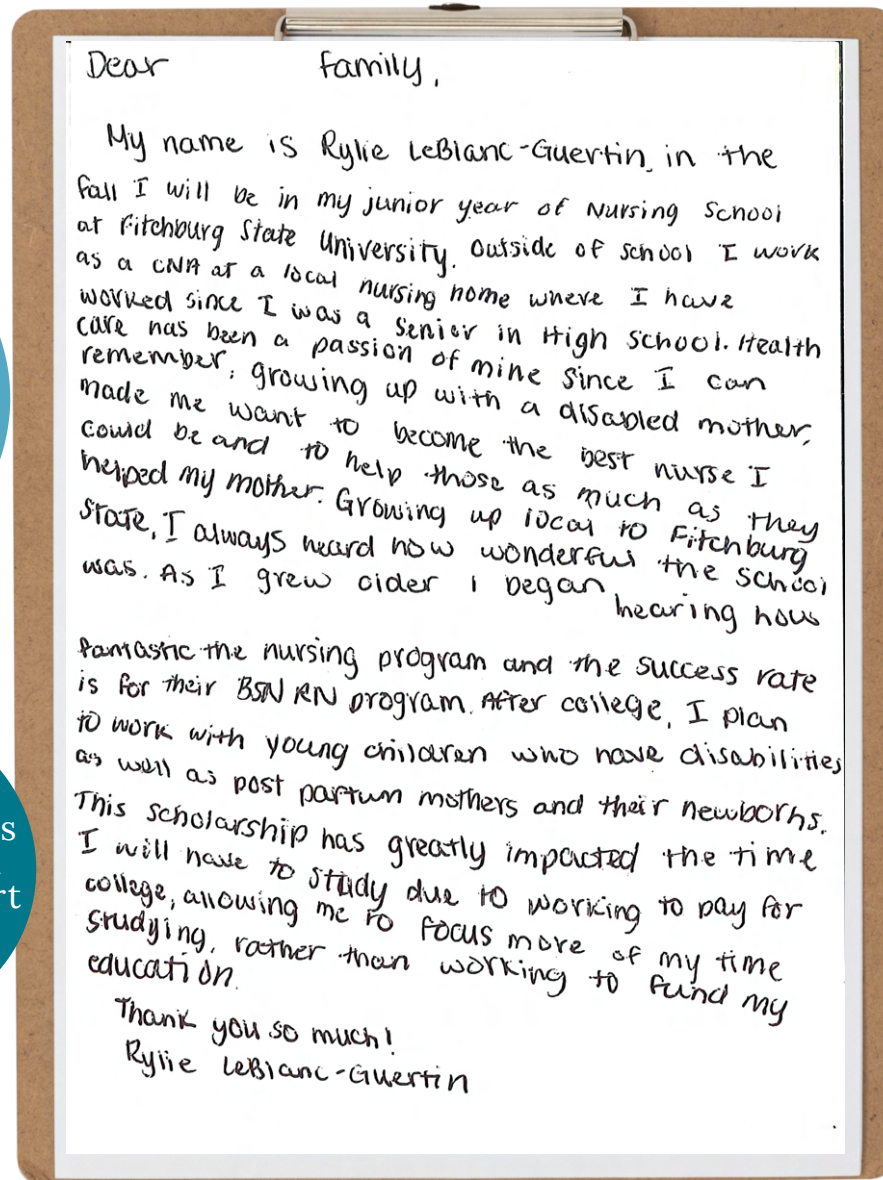 Dear family,
My name is Rylie LeBlanc-Guertin, in the
fall I will be in my junior year of Nursing School
at Fitchburg State University. Outside of school I work
as a CNA at a local nursing home where I have
worked since I was a senior in High School. Health
care has been a passion of mine since I can
remember, growing up with a disabled mother,
made me want to become the best nurse I
could be and to help those as much as they
helped my mother. Growing up local to Fitchburg
State, I always heard how wonderful the school
was. As I grew older I began hearing how
fantastic the nursing program and the success rate
is for their BSN RN program. After college, I plan
to work with young children who have disabilities
as well as post partum mothers and their newborns.
This scholarship has greatly impacted the time
I will have to study due to working to pay for
college, allowing me to focus more of my time
studying, rather than working to fund my
education.
Thank you so much!
Rylie LeBlanc-Guertin
s
rt